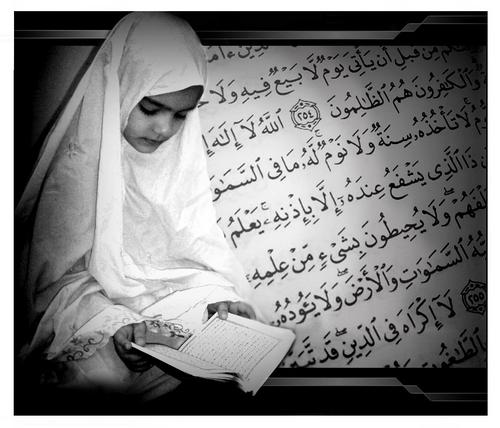 مِّن قَبْلِ أَن يَأْتِىَ يَوْمٌ لَّا بَيْعٌ فِيهِ وَلَا
وَٱلْكَٰفِرُونَ هُمُ ٱلظَّٰلِمُونَ ٢٥٤ ٱللَّهُ لَآ إِلَٰهَ
لَا تَأْخُذُهُۥ سِنَةٌ وَلَا نَوْمٌ لَّهُۥ مَا فِى ٱلسَّمَٰو
ذَا ٱلَّذِى يَشْفَعُ عِندَهُۥٓ إِلَّا بِإِذْنِهِۦ يَعْلَمُ
لْفَهُمْ وَلَا يُحِيطُونَ بِشَىْءٍ مِّنْ عِلْمِهِۦٓ
ٱلسَّمَٰوَٰتِ وَٱلْأَرْضَ وَلَا يَـُٔودُهُۥ
٢٥٥ لَآ إِكْرَاهَ فِى ٱلدِّينِ قَد تَّبَيَّ